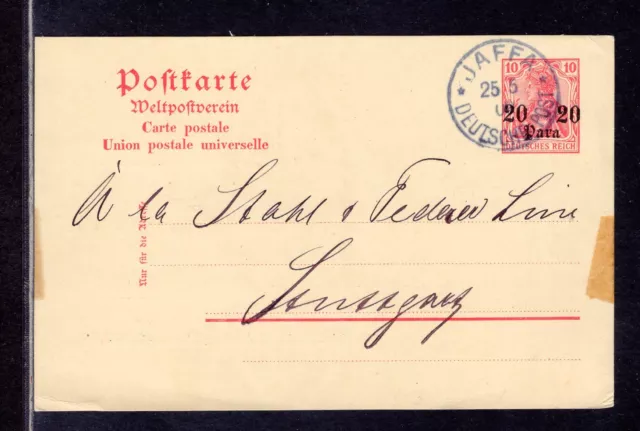 Postkarte
Weltpostverein
Carte postale
Union postale universelle
JAFFA
25 5
DEUTSCHE POST
10 10
20 20
Para
DEUTSCHES REICH
À la Stahl & Federer
Stuttgart
Nur für die Adresse